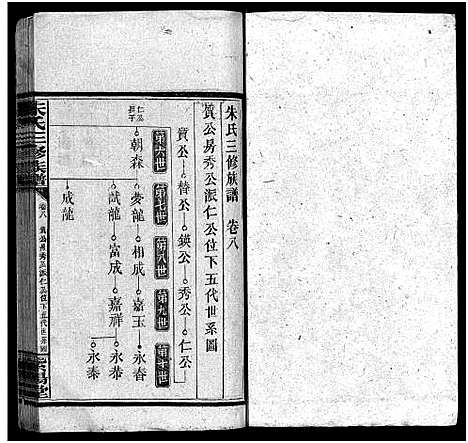 朱氏三修族譜 卷八
質公房秀公派仁公位下五代世系圖
質公 替公 鍈公 秀公 仁公
第六世 第七世 第八世 第九世 第十世
仁公長子 朝森 夢龍 相成 嘉玉 永春
試龍 富成 嘉祥 永恭
永泰
成龍
朱氏三修族譜
卷八 質公房秀公派仁公位下五代世系圖